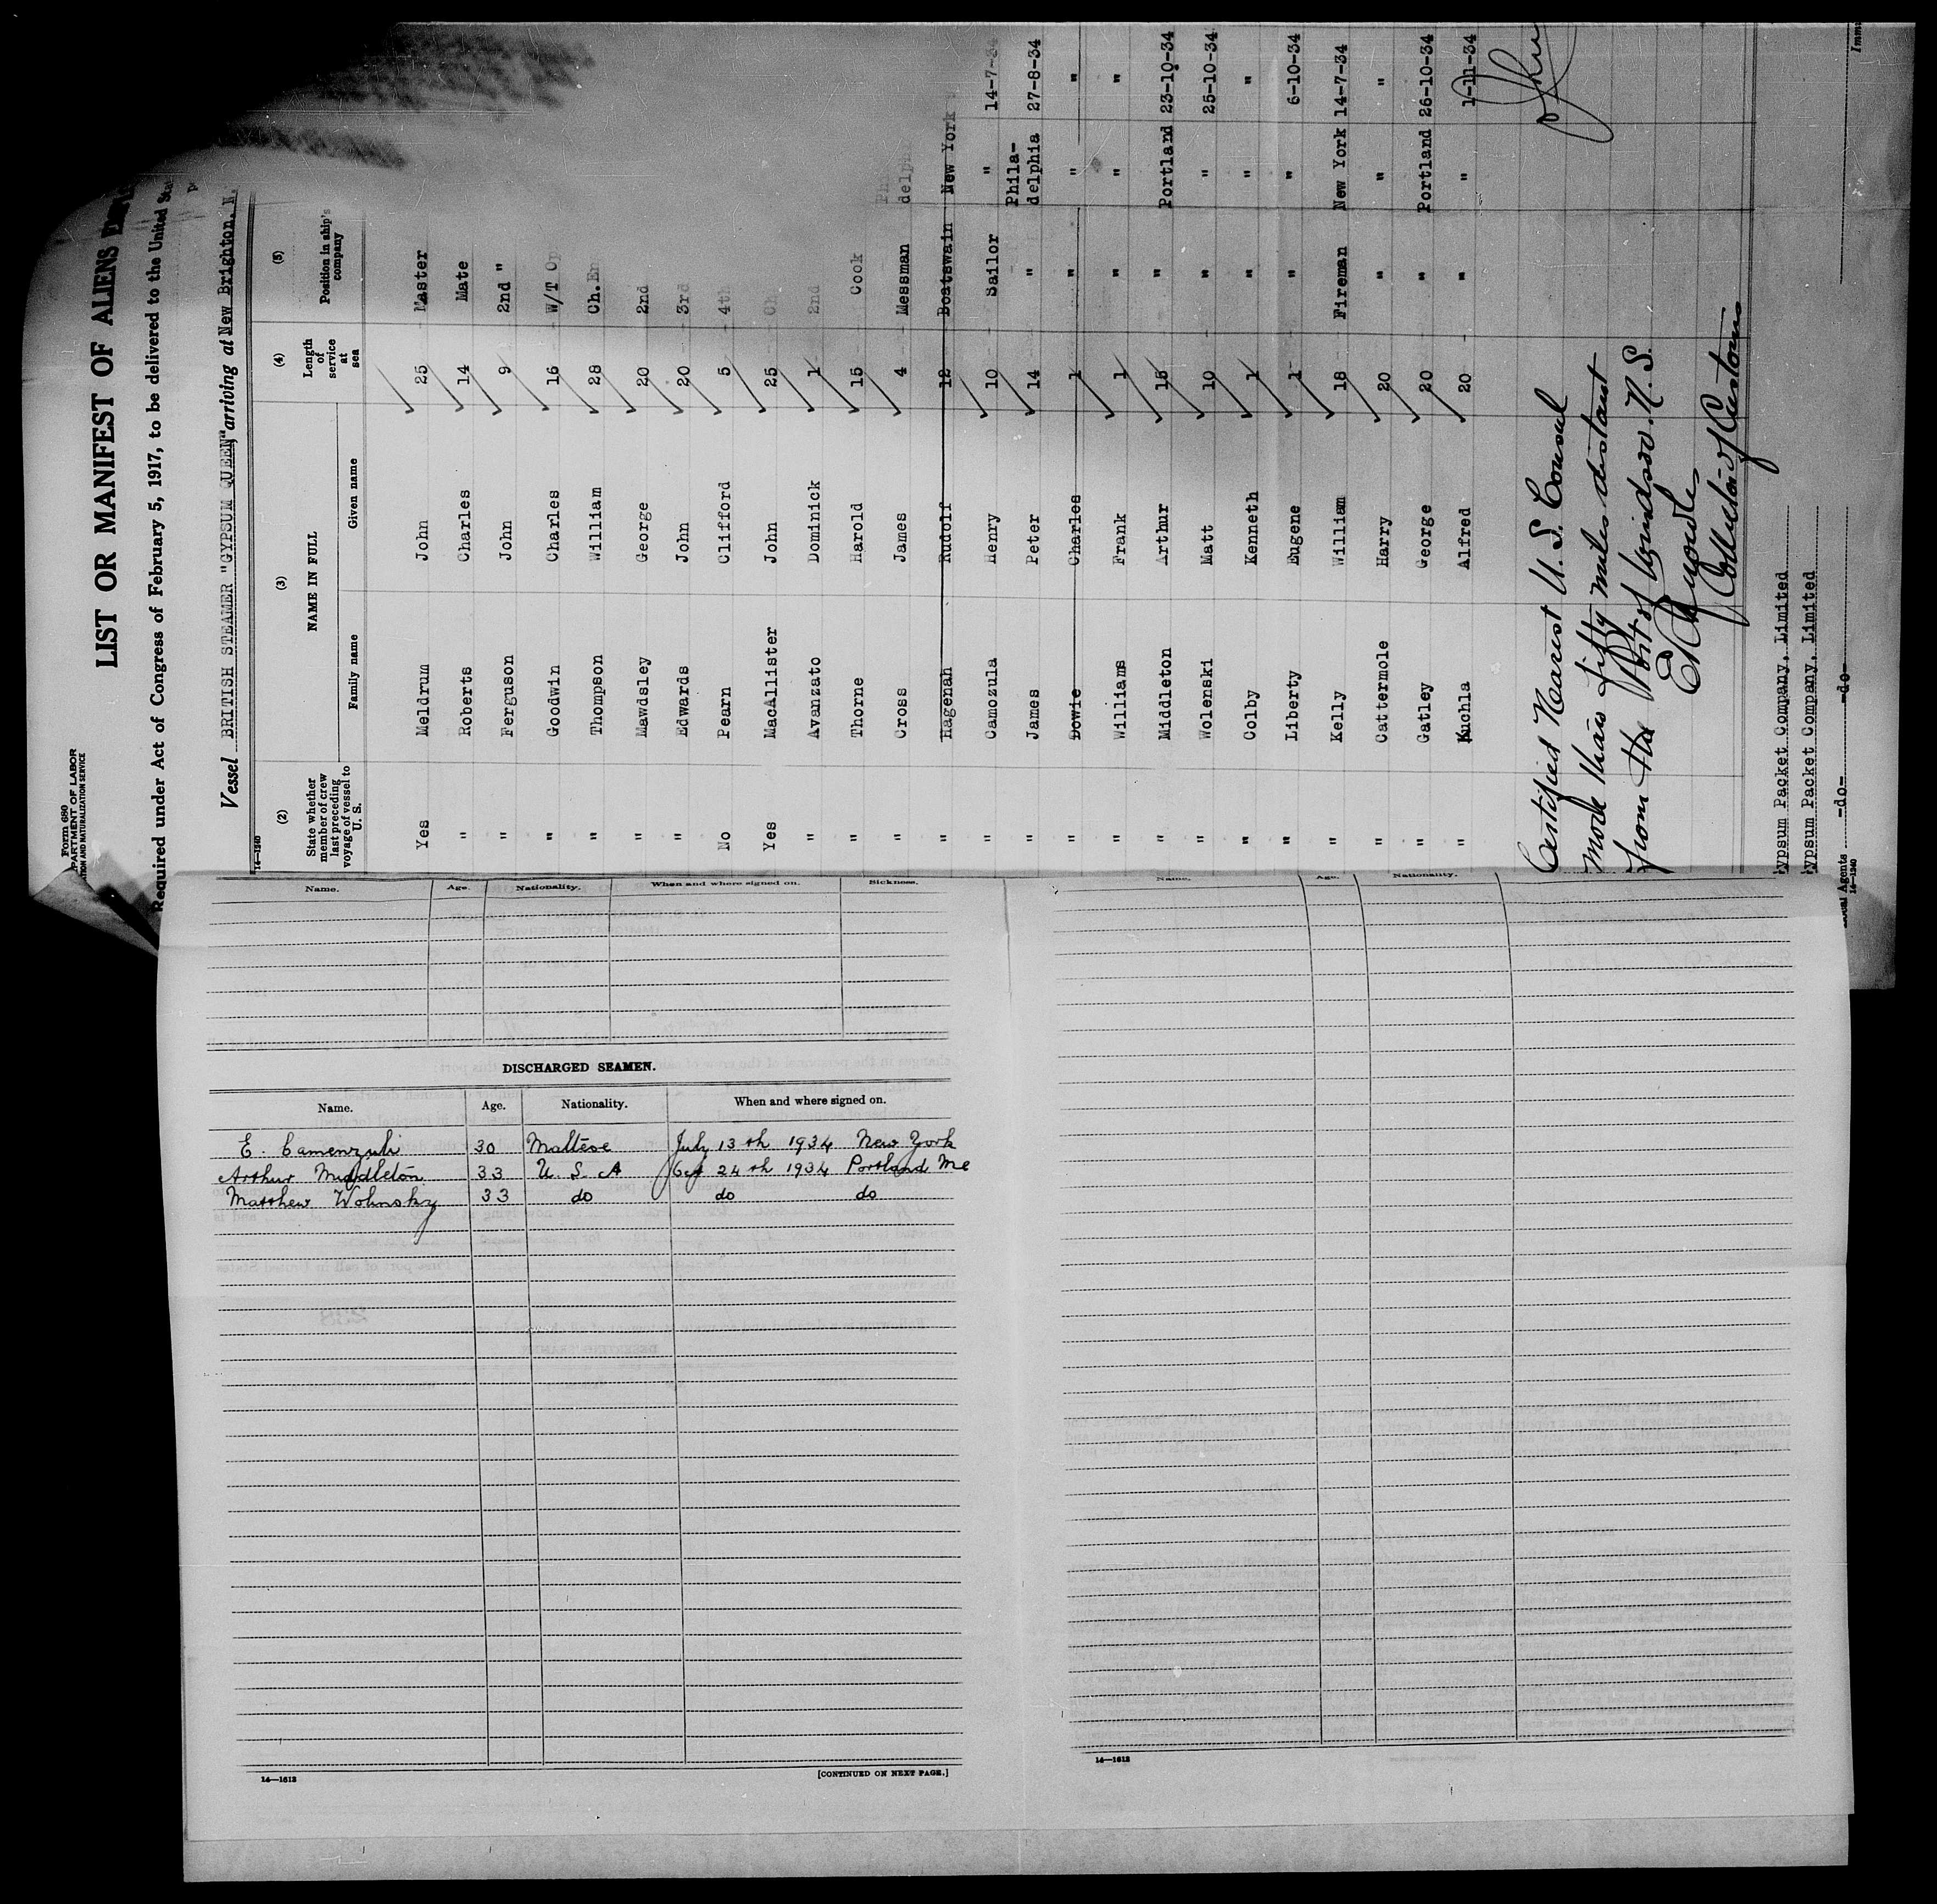 Form 680
PARTMENT OF LABOR
ATION AND NATURALIZATION SERVICE
LIST OR MANIFEST OF ALIENS EMPLO
Required under Act of Congress of February 5, 1917, to be delivered to the United Sta
Vessel BRITISH STEAMER "GYPSUM QUEEN", arriving at New Brighton, N.
14—1240
(2) (3) (4) (5)
State whether member of crew last preceding voyage of vessel to U. S. NAME IN FULL Length of service at sea Position in ship's company
Family name Given name
Yes Meldrum John 25 Master
" Roberts Charles 14 Mate
" Ferguson John 9 2nd "
" Goodwin Charles 16 W/T Op
" Thompson William 28 Ch.En
" Mawdsley George 20 2nd
" Edwards John 20 3rd
No Pearn Clifford 5 4th
Yes MacAllister John 25 Ch
" Avanzato Dominick 1 2nd
" Thorne Harold 15 Cook
" Cross James 4 Messman delph
" Hagenah Rudolf 12 Boatswain New York
" Camozula Henry 10 Sailor " 14-7-34
" James Peter 14 " Phila-delphia 27-8-34
" Bowie Charles 1 " " "
" Williams Frank 1 " " "
" Middleton Arthur 15 " Portland 23-10-34
" Wolenski Matt 10 " " 25-10-34
" Colby Kenneth 1 " " "
" Liberty Eugene 1 " " 6-10-34
" Kelly William 18 Fireman New York 14-7-34
" Cattermole Harry 20 " " "
" Gatley George 20 " Portland 26-10-34
" Kuchla Alfred 20 " " 1-11-34
Certified Nearest U. S. Consul
more than fifty miles distant
from the Port of Windsor. N. S.
Collector of Customs
ypsum Packet Company, Limited
ypsum Packet Company, Limited
Agents -do- -do-
14—1240
Imm
Name. Age. Nationality. When and where signed on. Sickness.
Name. Age. Nationality.
DISCHARGED SEAMEN.
Name. Age. Nationality. When and where signed on.
E. Camenzuli 30 Maltese July 13th 1934 New York
Arthur Middleton 33 U. S. A Oct 24th 1934 Portland Me
Matthew Wolinsky 33 do do do
14—1612 [CONTINUED ON NEXT PAGE.]
14—1612